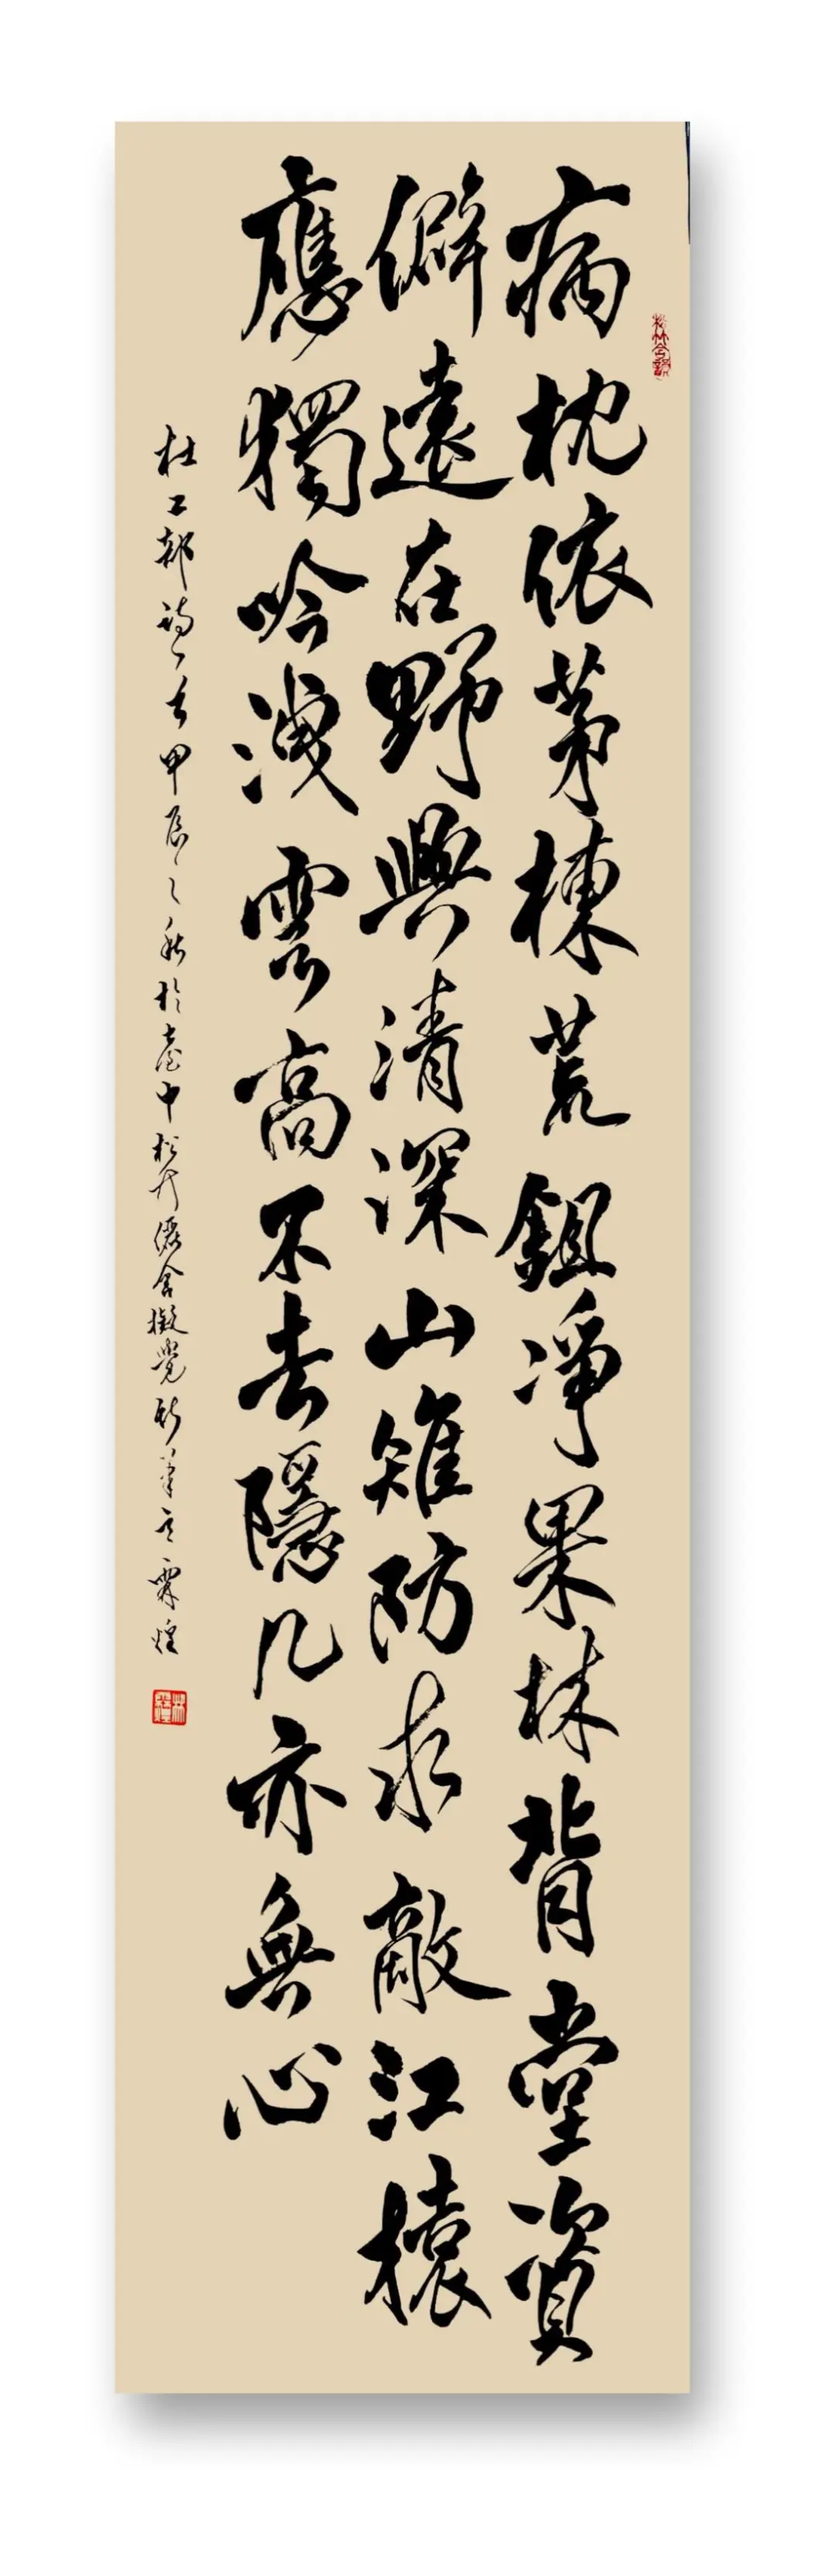 病枕依茅棟荒鉏淨果林背堂資
僻遠在野興清深山雉防求敵江猿
應獨吟洩雲高不去隱几亦無心
杜工部詩一首甲辰之秋於臺中松竹僊舍擬覺斯筆意霖煌